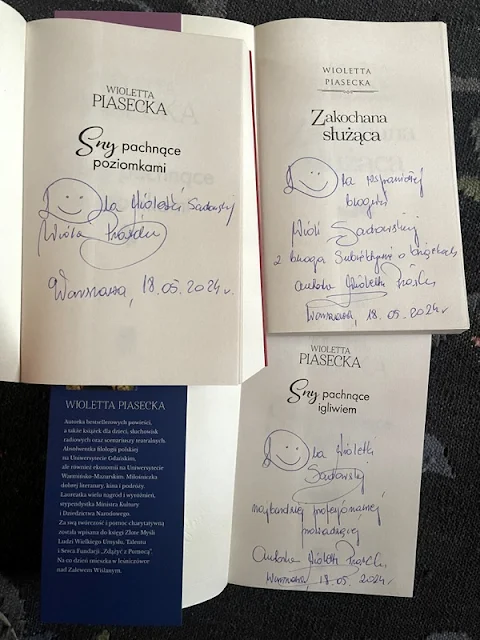 WIOLETTA
PIASECKA
Sny pachnące
poziomkami
Dla Wioletki Sadowskiej
Wiola
Warszawa, 18.05.2024 r.
WIOLETTA
PIASECKA
Zakochana
służąca
Dla wspaniałej
blogerki
Wioli Sadowskiej
z bloga Subiektywnie o książkach
autorka Wioletta Piasecka
Warszawa, 18.05.2024 r.
WIOLETTA
PIASECKA
Sny pachnące
igliwiem
Dla Wioletki
Sadowskiej
najbardziej profesjonalnej
prowadzącej
autorka Wioletta Piasecka
Warszawa, 18.05.2024 r.
WIOLETTA PIASECKA
Autorka bestsellerowych powieści,
a także książek dla dzieci, słuchowisk
radiowych oraz scenariuszy teatralnych.
Absolwentka filologii polskiej
na Uniwersytecie Gdańskim,
ale również ekonomii na Uniwersytecie
Warmińsko-Mazurskim. Miłośniczka
dobrej literatury, kina i podróży.
Laureatka wielu nagród i wyróżnień,
stypendystka Ministra Kultury
i Dziedzictwa Narodowego.
Za swą twórczość i pomoc charytatywną
została wpisana do księgi Złote Myśli
Ludzi Wielkiego Umysłu, Talentu
i Serca Fundacji „Zdążyć z Pomocą".
Na co dzień mieszka w leśniczówce
nad Zalewem Wiślanym.